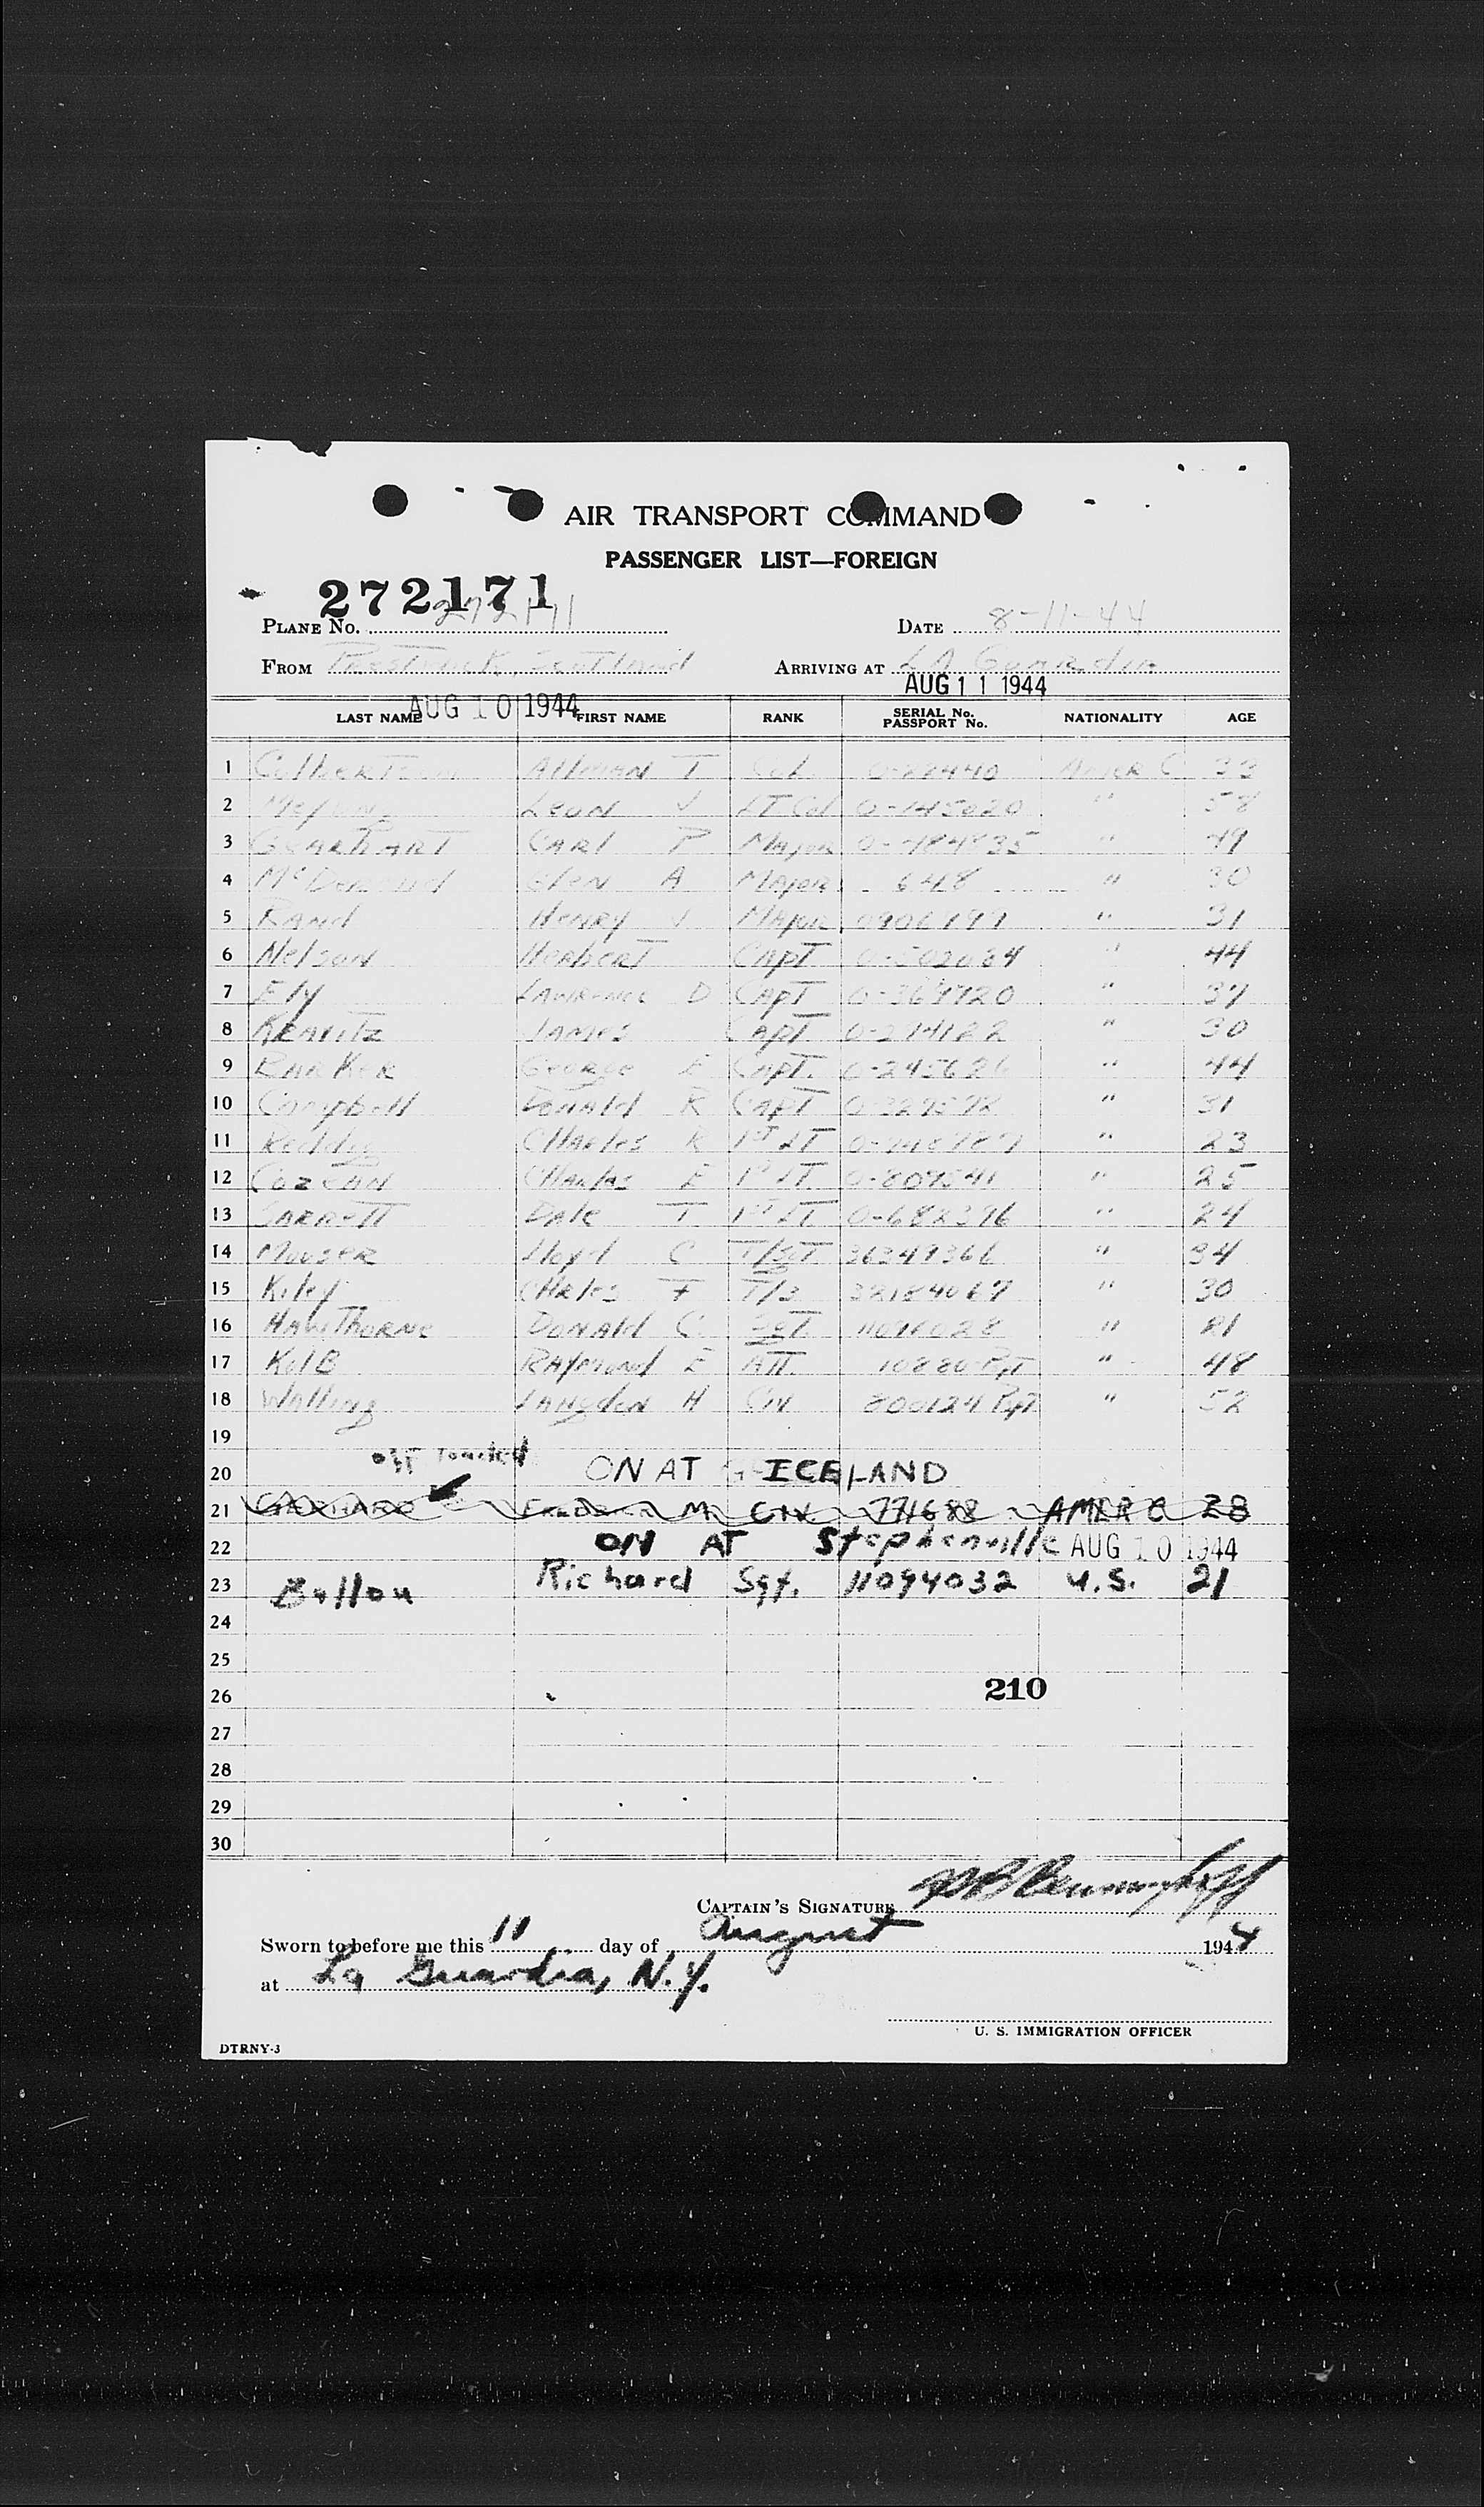 AIR TRANSPORT COMMAND
PASSENGER LIST—FOREIGN
272171
PLANE No. 272171 DATE 8-11-44
FROM Prestwick, Scotland ARRIVING AT LA GuARdiA
AUG 10 1944 AUG 11 1944
LAST NAME FIRST NAME RANK SERIAL No. PASSPORT No. NATIONALITY AGE
1 Allman T Col. 0-22440 Amer C 33
2 Leon V LT Col 0-145020 " 58
3 GEARhART CARl P MAjoR "
4 Glen A MAjoR 648 " 30
5 RANd HENRy V MAjoR 0906199 " 31
6 NelsoN HerberT CApT " 44
7 Ely LAWRence D CApT "
8 KRAvitz JAMes CApT. " 30
9 BARKER GeoRge E CApT. " 44
10 Campbell DonAld R CApT " 31
11 CHARles R 1st LT " 23
12 CozeAN CHARles E 1st LT. 0-809541 " 25
13 DAle T 1st LT 0-682396 "  24
14 MouseR Lloyd C T/SgT 36349366 "
15 Kiley F T/3 32184069 " 30
16 HAwThoRNe DoNAld C. SgT. 11091028 " 21
17 KolB RAymond E ATT. 10880 PpT " 48
18 Walling LANgdon H Civ 800124 PpT " 52
19
20 ON AT ICELAND
21 M CIV 771688 AMER C 28
22 ON AT Stephenville AUG 10 1944
23 Ballou Richard Sgt. 11094032 U.S. 21
24
25
26 210
27
28
29
30
CAPTAIN'S SIGNATURE
Sworn to before me this 11 day of August 1944
at La Guardia, N.Y.
U. S. IMMIGRATION OFFICER
DTRNY-3